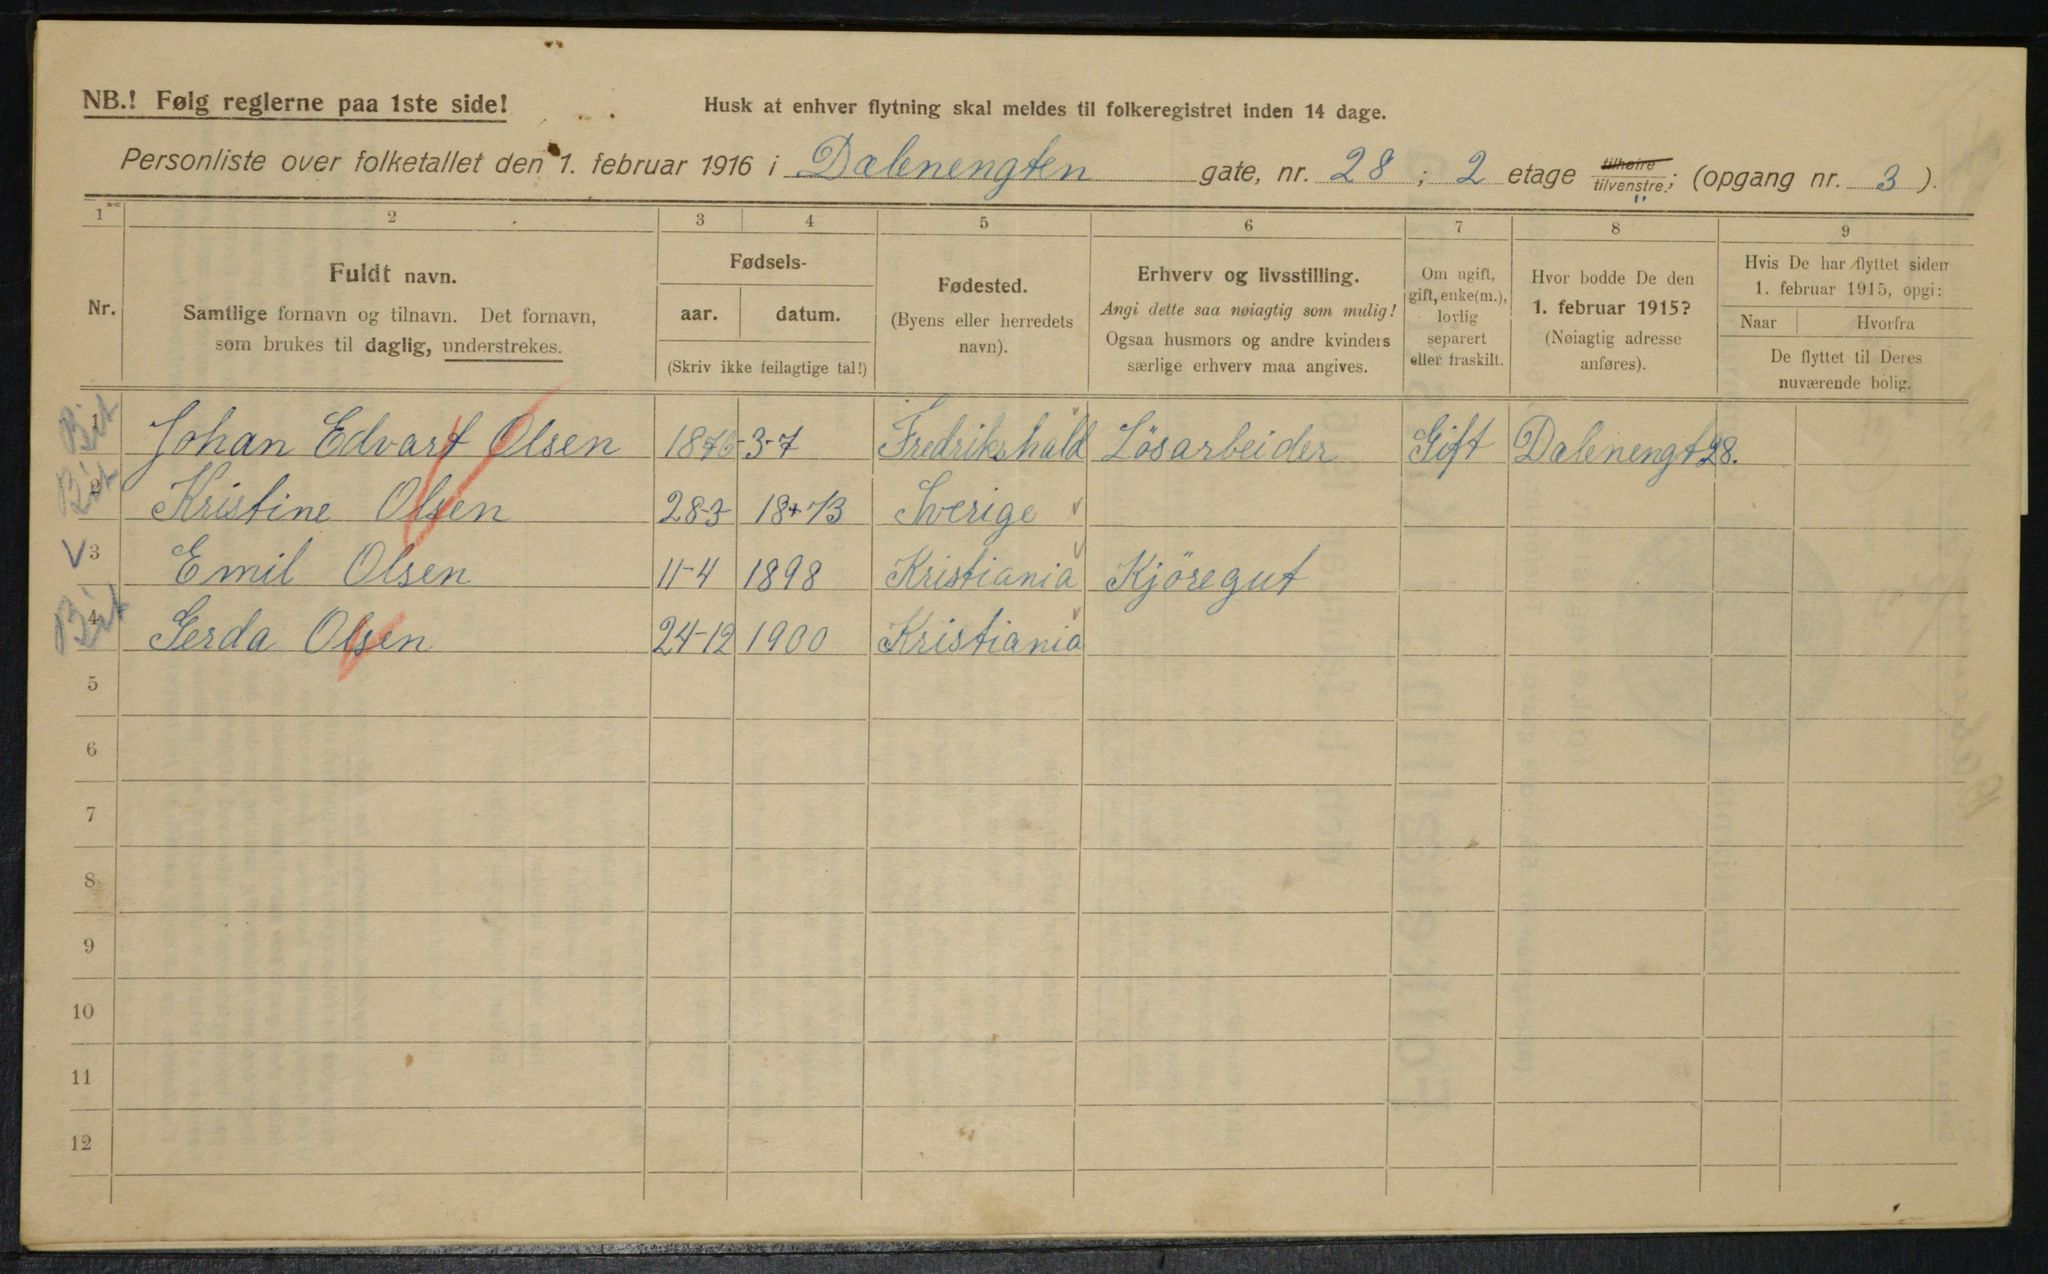 NB.! Følg reglerne paa 1ste side!
Husk at enhver flytning skal meldes til folkeregistret inden 14 dage.
Personliste over folketallet den 1. februar 1916 i Dælenengten gate, nr. 28 ; 2 etage tilhøire tilvenstre; (opgang nr. 3 ).
1 2 3 4 5 6 7 8 9
Nr.
Fuldt navn.
Samtlige fornavn og tilnavn. Det fornavn,
som brukes til daglig, understrekes.
Fødsels-
aar. datum.
(Skriv ikke feilagtige tal!)
Fødested.
(Byens eller herredets
navn).
Erhverv og livsstilling.
Angi dette saa nøiagtig som mulig!
Ogsaa husmors og andre kvinders
særlige erhverv maa angives.
Om ugift,
gift, enke(m.),
lovlig
separert
eller fraskilt.
Hvor bodde De den
1. februar 1915?
(Nøiagtig adresse
anføres).
Hvis De har flyttet siden
1. februar 1915, opgi:
Naar Hvorfra
De flyttet til Deres
nuværende bolig.
1 Johan Edvart Olsen 1876 3-7 Fredrikshald Lösarbeider Gift Dælenengt 28.
2 Kristine Olsen 28-3 1873 Sverige
3 Emil Olsen 11-4 1898 Kristiania Kjöregut
4 Gerda Olsen 24-12 1900 Kristiania
5
6
7
8
9
10
11
12